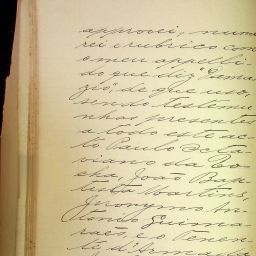 approvei, nume
rei e rubrico com
o meu appelli-
do que diz "Dama
zio", de que uso,
sendo testemu
nhas presentes
a todo este ac-
to Paulo Octa-
viano da Ro
cha, João Bap
tista Martins,
Jeronymo An-
tonio Guima
rães, o Tenen
te d'Armada